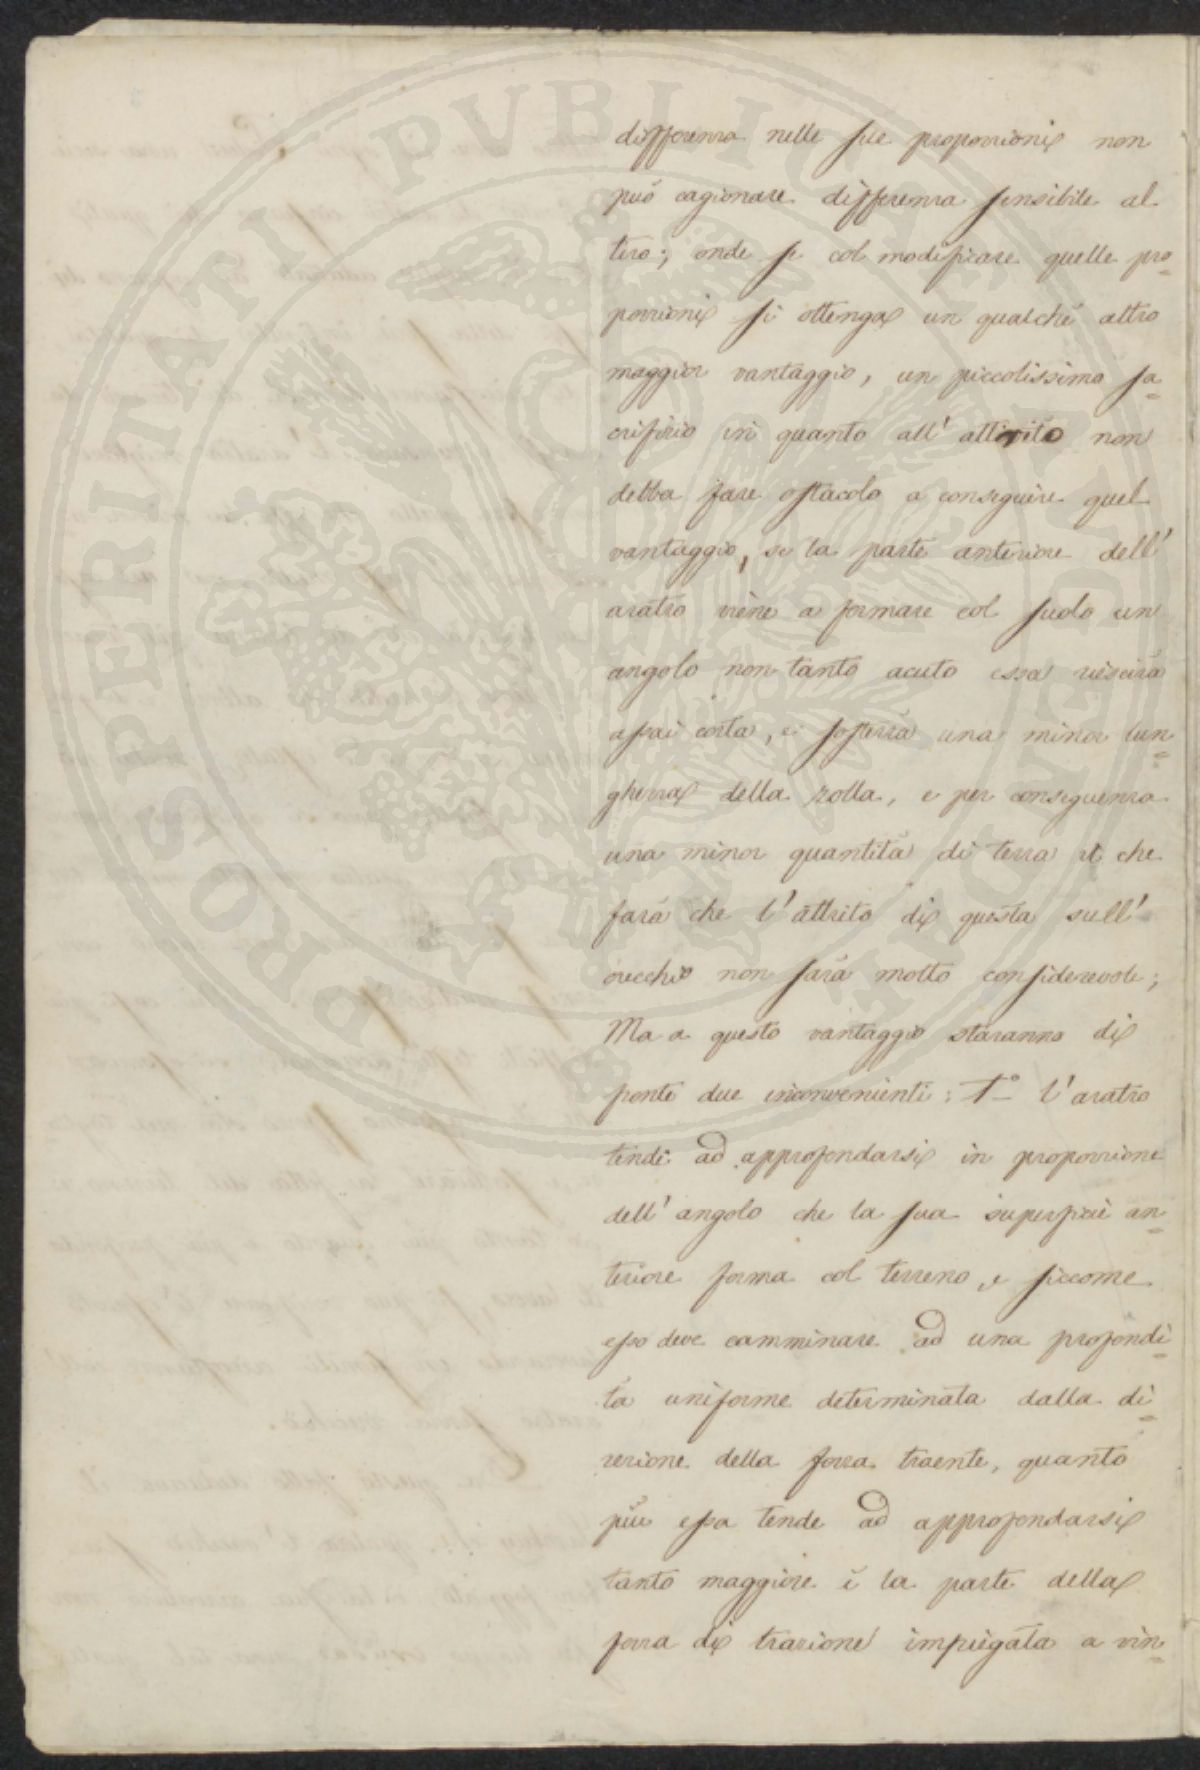 differenza nelle sue proporzioni non
può cagionare differenza sensibile al
tiro; onde se col modificare quelle pro=
porzioni si ottenga un qualche altro
maggior vantaggio, un piccolissimo sa=
crifizio in quanto all' attrito non
debba fare ostacolo a conseguire quel
vantaggio, se la parte anteriore dell'
aratro viene a formare col suolo un
angolo non tanto acuto essa riescirà
assai corta, e sosterrà una minor lun=
ghezza della zolla, e per conseguenza
una minor quantità di terra il che
farà che l' attrito di questa sull'
orecchio non sarà molto considerevole;
Ma a questo vantaggio staranno di
fronte due inconvenienti: 1° l' aratro
tende ad approfondarsi in proporzione
dell' angolo che la sua superficie an=
teriore forma col terreno, e siccome
esso deve camminare ad una profondi=
tà uniforme determinata dalla di=
rezione della forza traente, quanto
più essa tende ad approfondarsi
tanto maggiore è la parte della
forza di trazione impiegata a vin=
PROSPERITATI PVBLICAE AVGENDAE